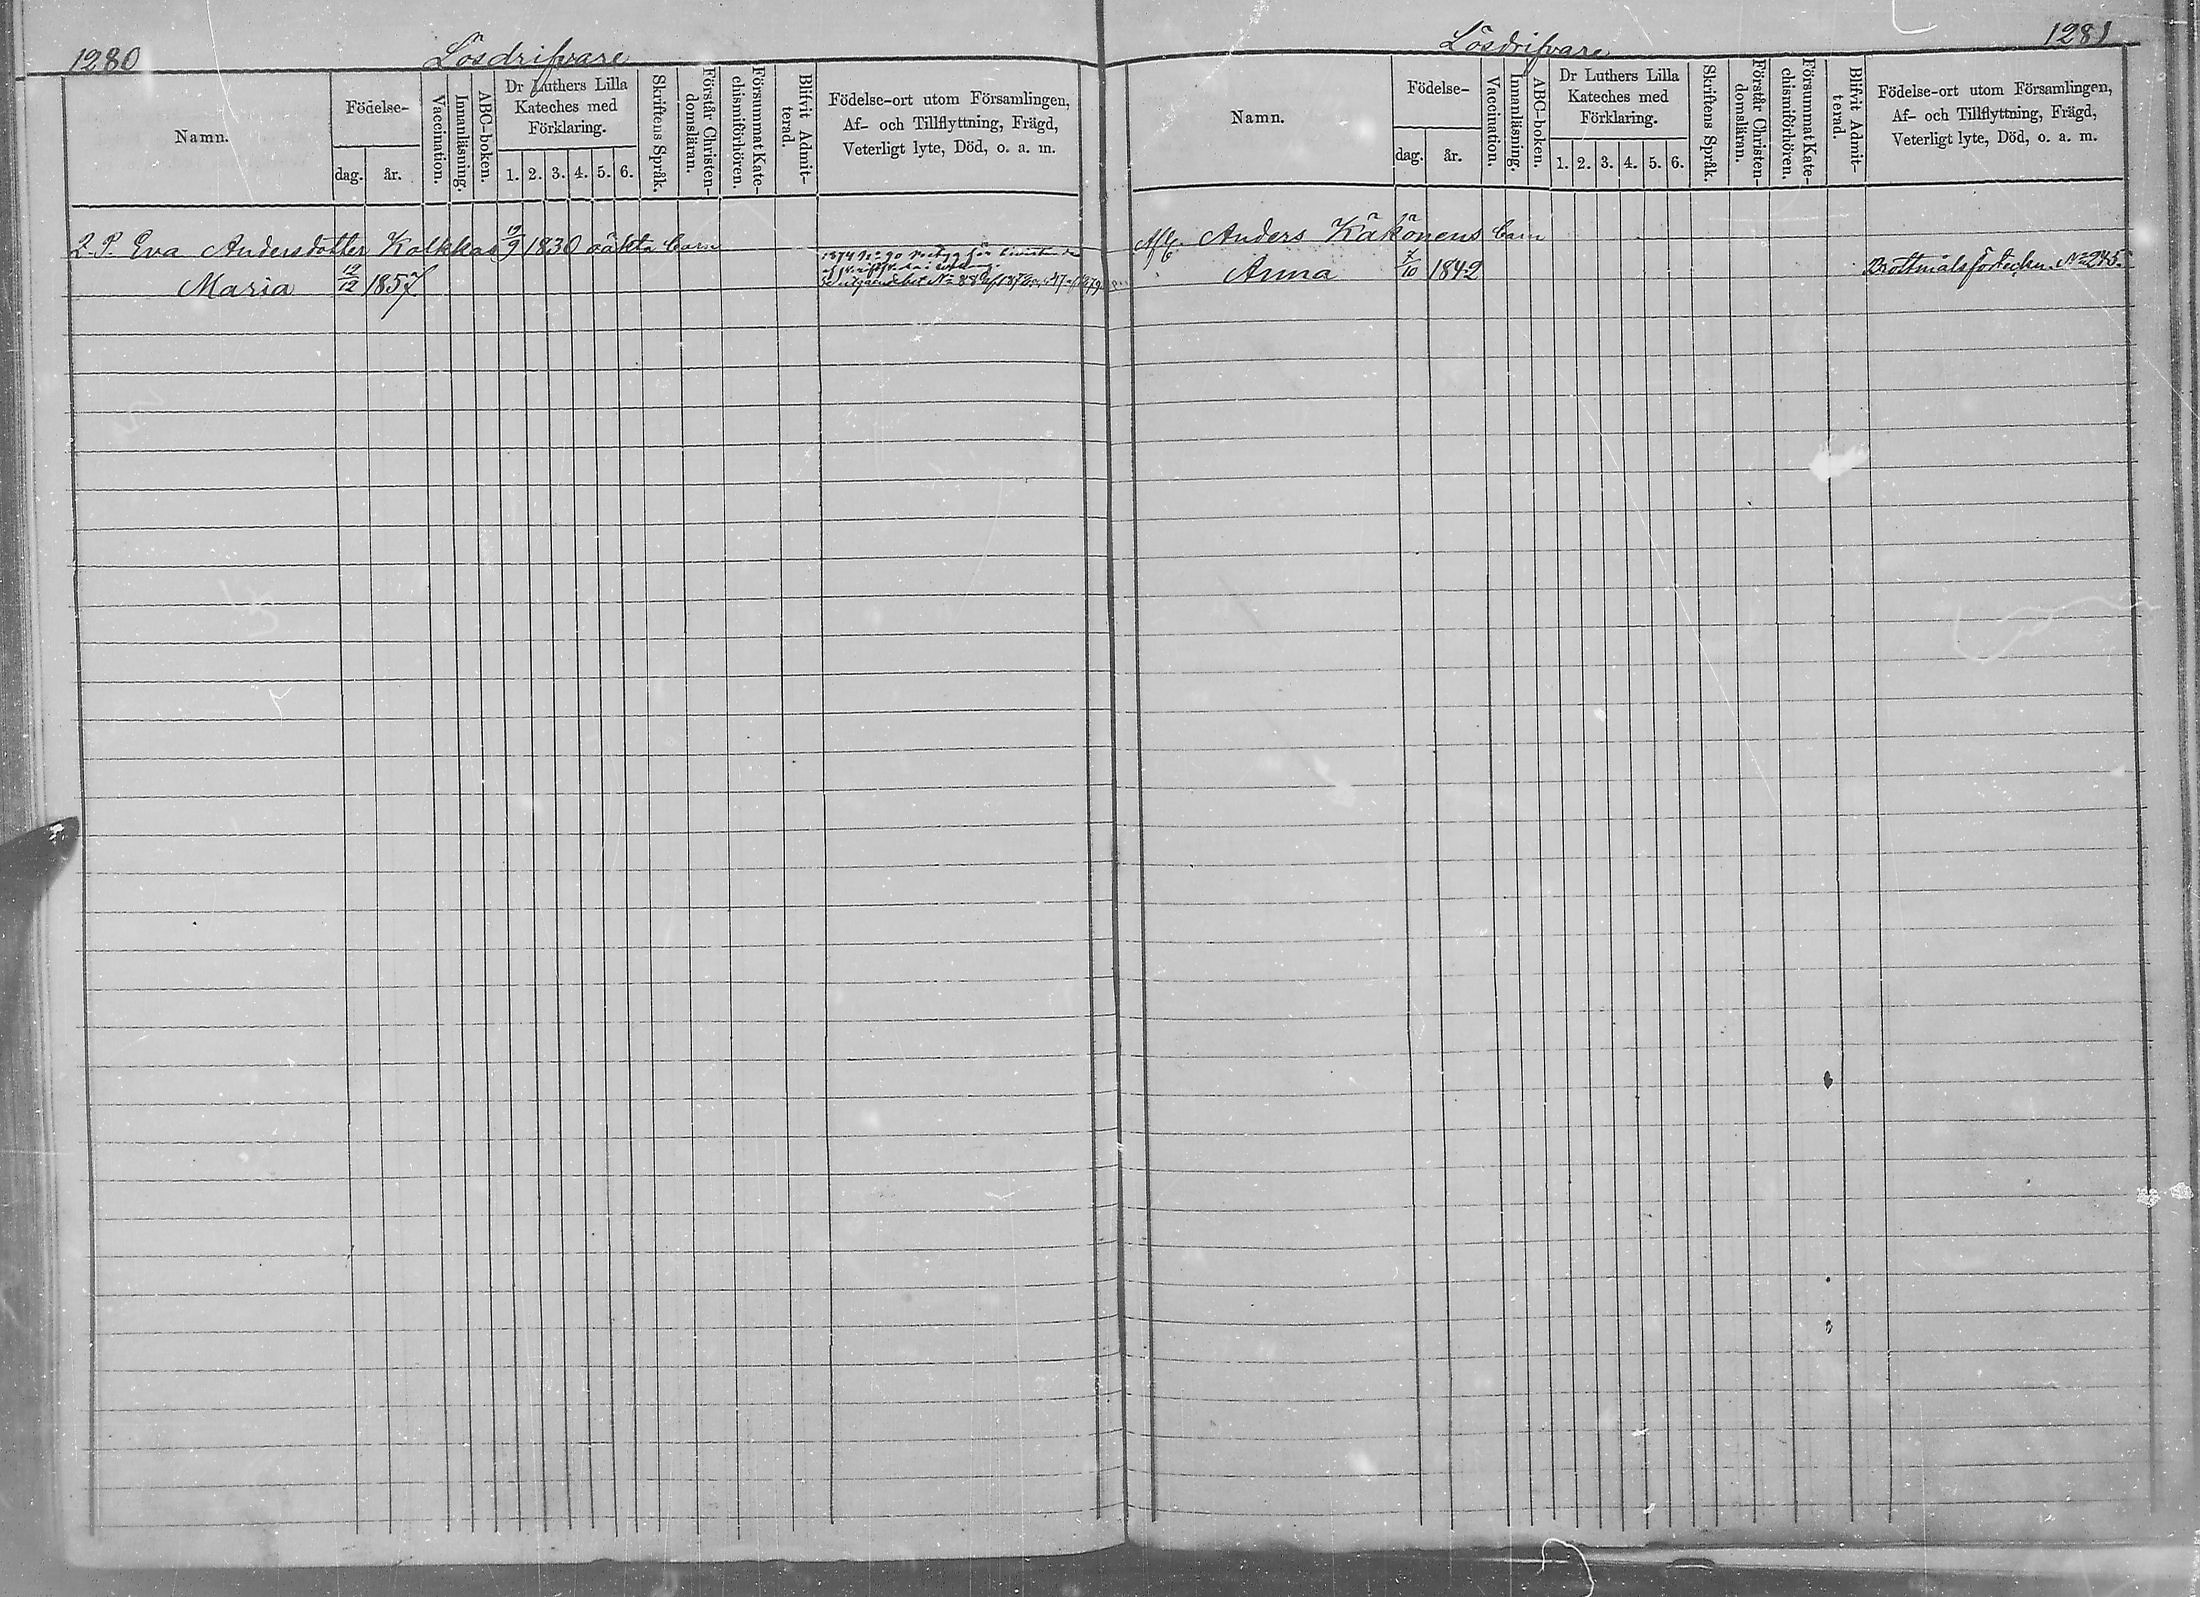 1280
Lösdrifvare
Namn.
Födelse-
dag.
år.
Vaccination.
Innanläsning.
ABC-boken.
Dr Luthers Lilla
Kateches med
Förklaring.
1. 2. 3. 4. 5. 6.
Skriftens Språk.
Förstår Christen-
domsläran.
Försummat Kate-
chismiförhören.
Blifvit Admit-
terad.
Födelse-ort utom Församlingen,
Af- och Tillflyttning, Frägd,
Veterligt lyte, Död, o. a. m.
Q. P. Eva Andersdotter Kolkkas 19/9 1830 oäkta barn
1874 No 90
Maria 12/12 1857
1281
Lösdrifvare
Namn.
Födelse-
dag.
år.
Vaccination.
Innanläsning.
ABC-boken.
Dr Luthers Lilla
Kateches med
Förklaring.
1. 2. 3. 4. 5. 6.
Skriftens Språk.
Förstår Christen-
domsläran.
Försummat Kate-
chismiförhören.
Blifvit Admit-
terad.
Födelse-ort utom Församlingen,
Af- och Tillflyttning, Frägd,
Veterligt lyte, Död, o. a. m.
Anders Käkönens barn
Anna 7/10 1842 Brottmålsförteckn. No 275.